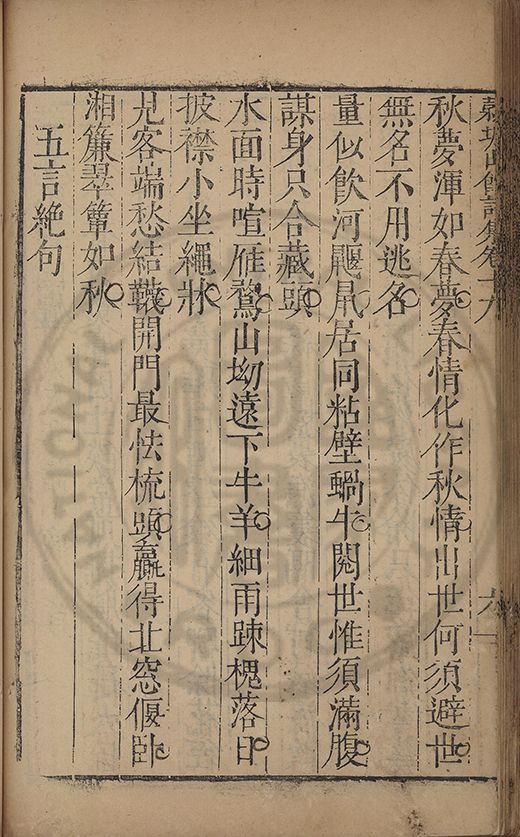 秋夢渾如春夢春情化作秋情出世何須避世
無名不用逃名
量似飲河鼴鼠居同粘壁蝸牛閱世惟須滿腹
謀身只合藏頭
水面時喧雁鶩山坳遠下牛羊細雨踈槐落日
披襟小坐繩牀
見客端愁結韈開門最怯梳頭贏得北窓偃卧
湘簾翠簟如秋
五言絶句